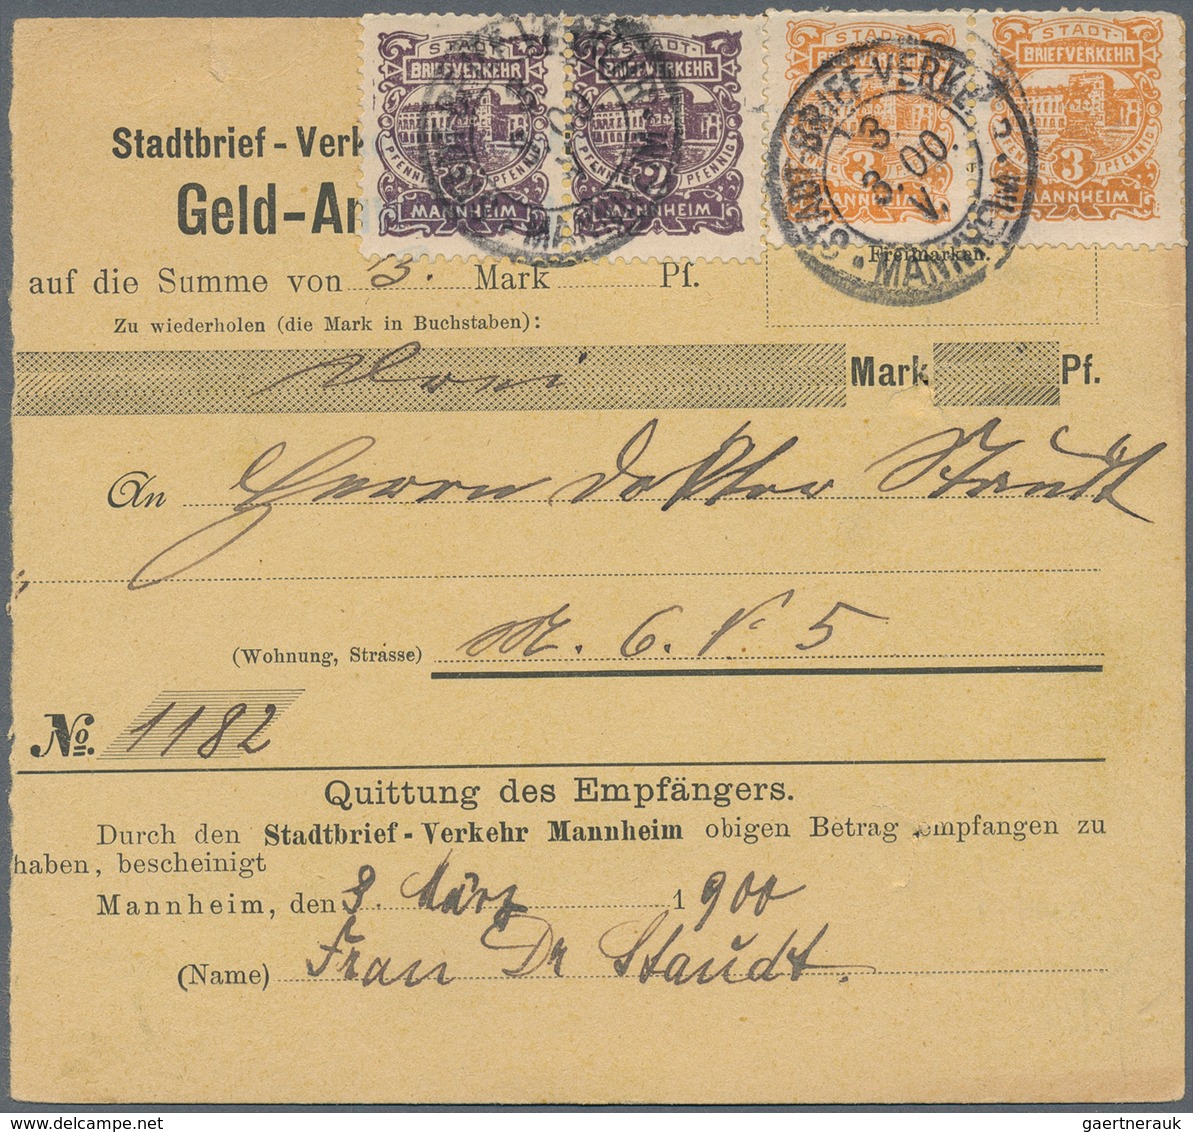 STADT-
BRIEFVERKEHR
PFENNIG 2 PFENNIG
MANNHEIM
STADT-
BRIEFVERKEHR
PFENNIG 2 PFENNIG
MANNHEIM
STADT-
BRIEFVERKEHR
3 PFENNIG
MANNHEIM
STADT-
BRIEFVERKEHR
PFENNIG 3 PFENNIG
MANNHEIM
STADT-BRIEF-VERKE
3 3
00.
V.
• MANNHEIM •
Stadtbrief-Verk
Geld-An
Freimarken.
auf die Summe von 3. Mark Pf.
Zu wiederholen (die Mark in Buchstaben):
Drei Mark Pf.
An Herrn Doktor Staudt
(Wohnung, Strasse) M. 6. N. 5
No. 1182
Quittung des Empfängers.
Durch den Stadtbrief-Verkehr Mannheim obigen Betrag empfangen zu
haben, bescheinigt
Mannheim, den 3. März 1900
(Name) Frau Dr Staudt.
gaertnerauk